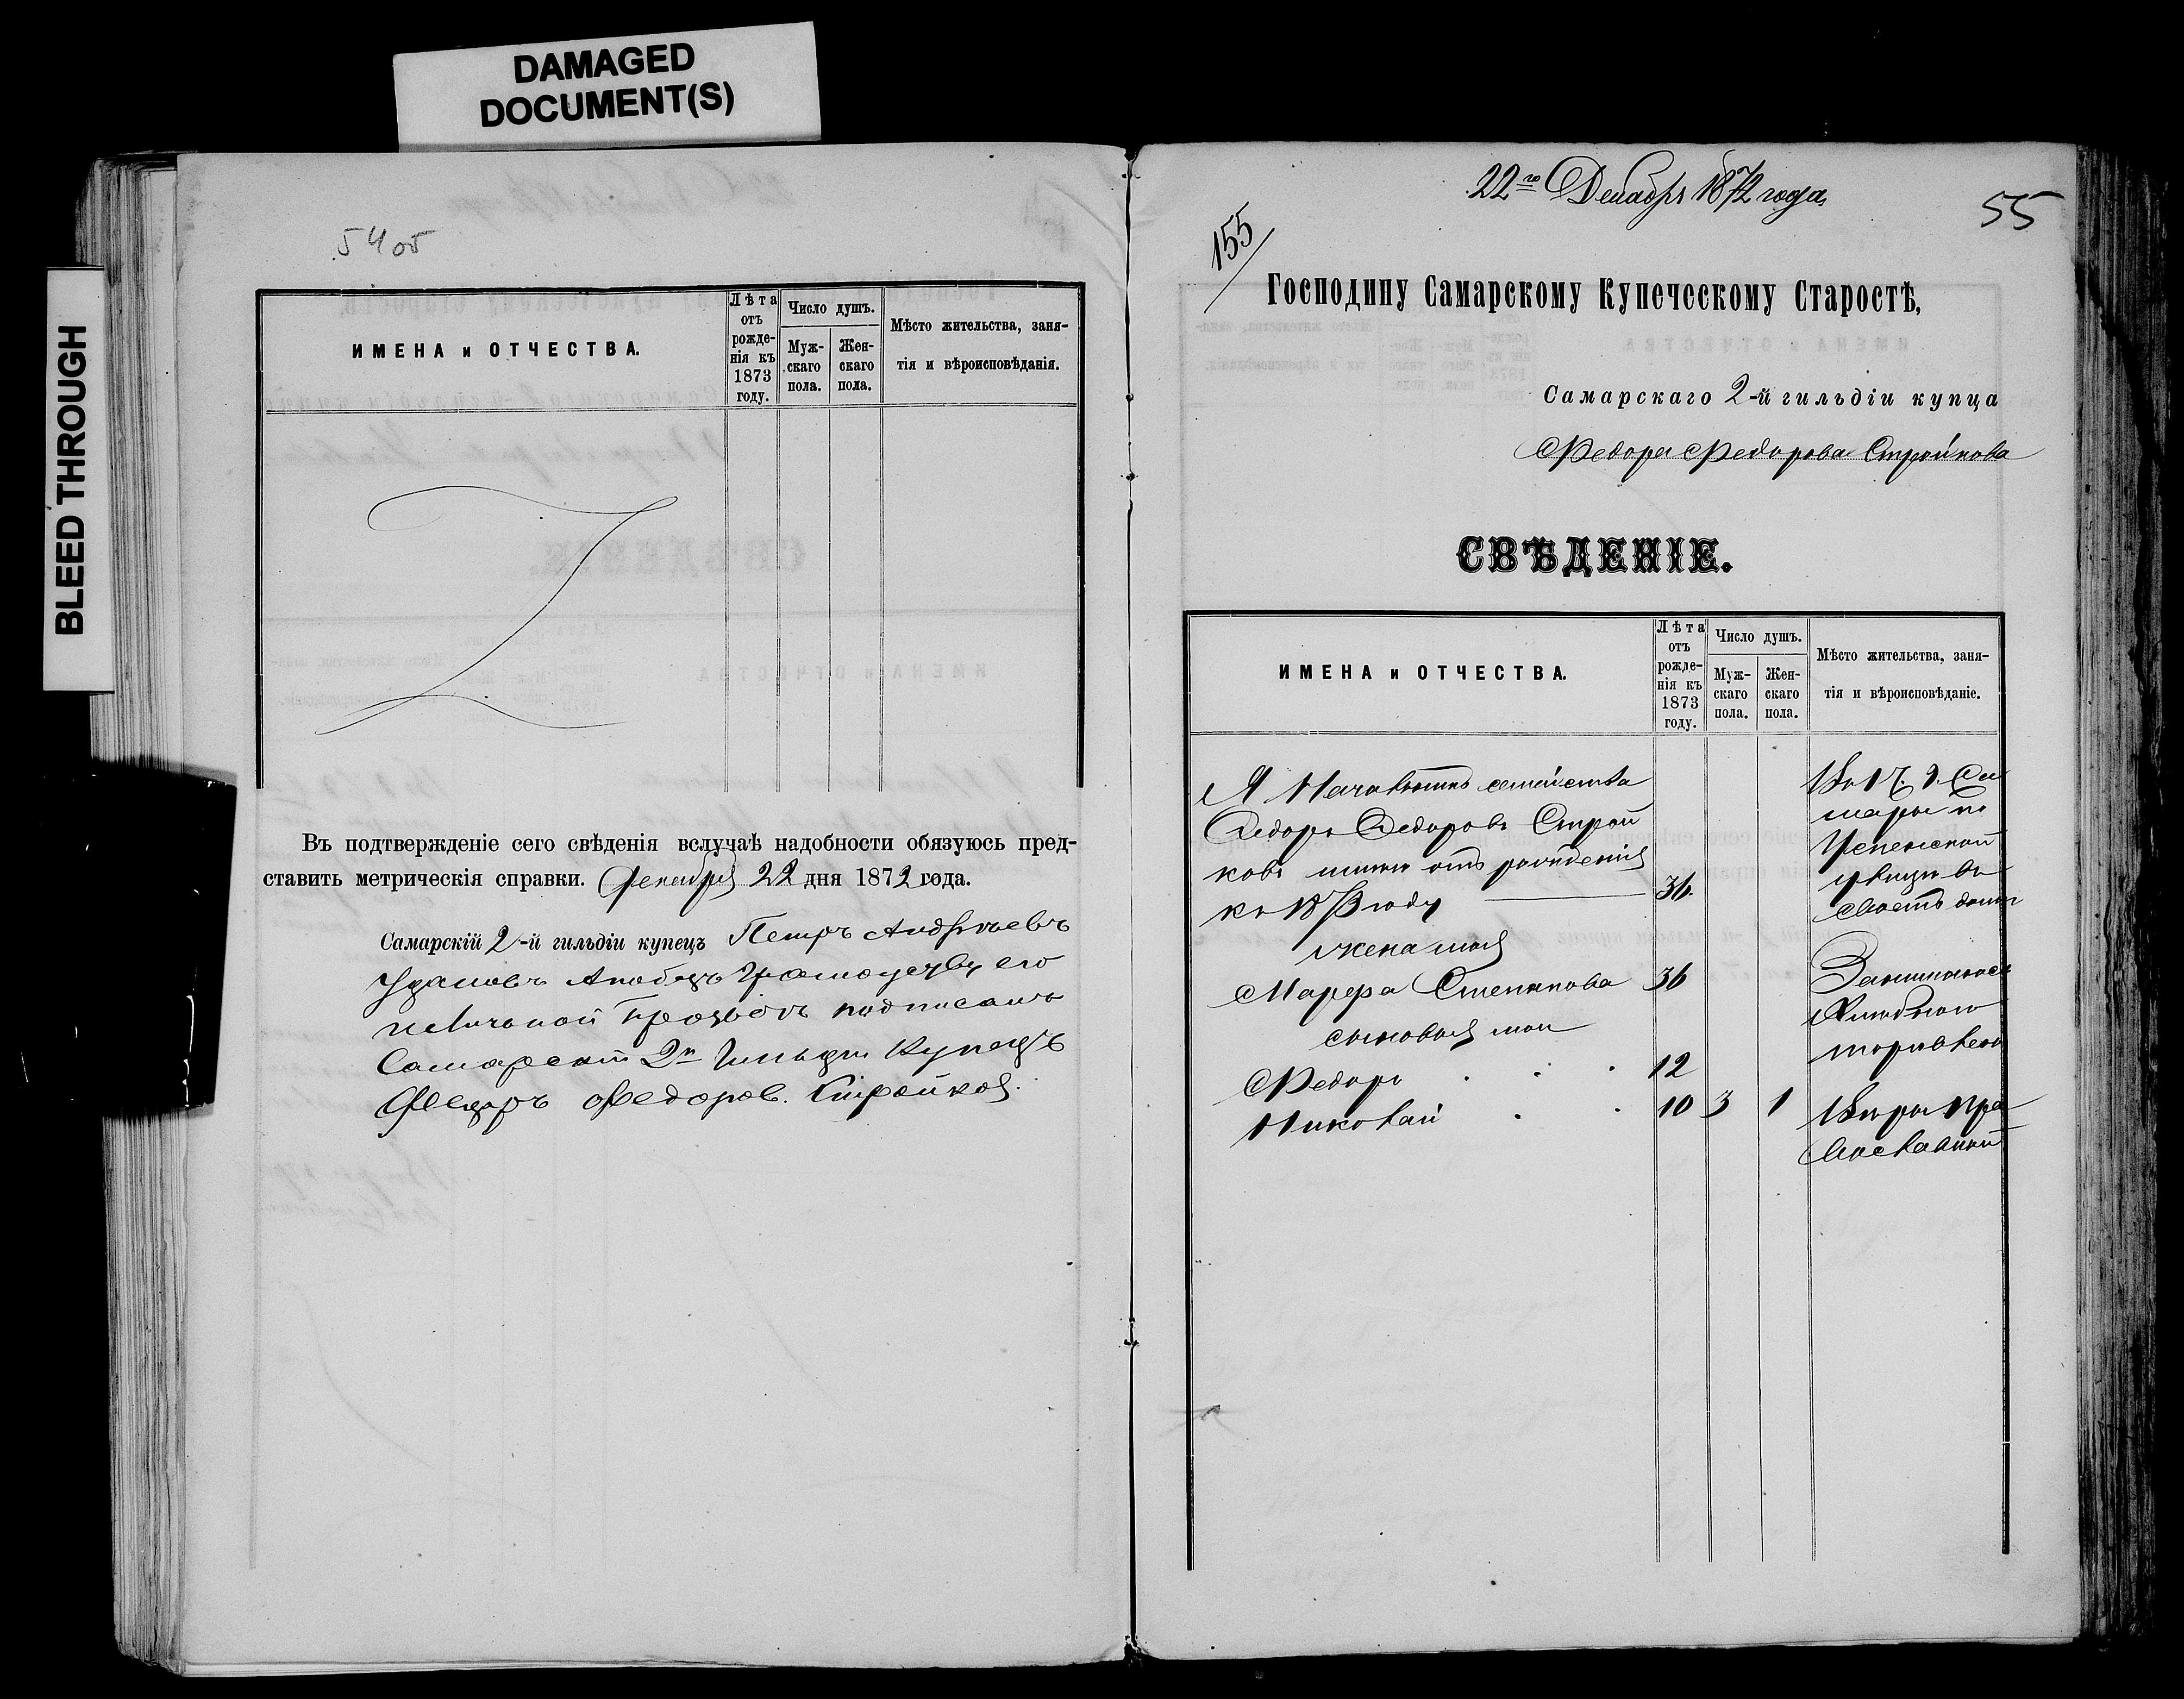 DAMAGED
DOCUMENT(S)
BLEED THROUGH
54 об
ИМЕНА и ОТЧЕСТВА.
Лѣта
отъ
рожде-
нія къ
1873
году.
Число душъ.
Муж-
скаго
пола.
Жен-
скаго
пола.
Мѣсто жительства, заня-
тія и вѣроисповѣданія.
Въ подтвержденіе сего свѣденія вслучаѣ надобности обязуюсь пред-
ставить метрическія справки. Декабря 22 дня 1872 года.
Самарскій 2-й гильдіи купецъ Петръ Андрѣевъ
его
подписалъ
2й Купецъ
Федоров. Стройков
22го Декабря 1872 года
55
155
Господину Самарскому Купеческому Старостѣ,
Самарскаго 2-й гильдіи купца
Федора Федорова Стройкова
СВѢДЕНІЕ.
ИМЕНА и ОТЧЕСТВА.
Лѣта
отъ
рожде-
нія къ
1873
году.
Число душъ.
Муж-
скаго
пола.
Жен-
скаго
пола.
Мѣсто жительства, заня-
тія и вѣроисповѣданіе.
Я Началникъ семейства
Федоръ Федоровъ Строй
ковъ отъ рожденія
къ 1873 году 36.
жена моя
Марфа Степанова 36
сыновья мои
Федоръ 12
Николай 10 3 1
Са
мары по
Успенской
улицѣ въ
Занимаюсь
Хлебною
торговлею
Вѣры Пра
вославной